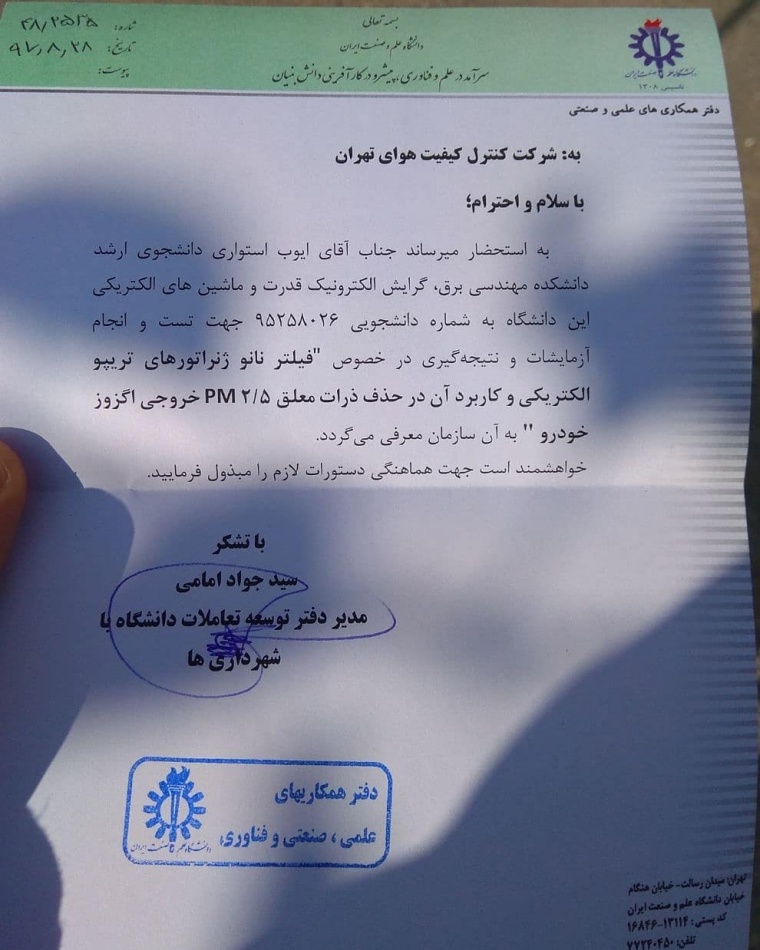 بسمه تعالی
دانشگاه علم و صنعت ایران
سرآمد در علم و فناوری، پیشرو در کارآفرینی دانش بنیان
شماره:
تاریخ: ۹۷,۸,۲۸
پیوست:
دانشگاه علم و صنعت ایران
تاسیس ۱۳۰۸
دفتر همکاری های علمی و صنعتی
به: شرکت کنترل کیفیت هوای تهران
با سلام و احترام؛
به استحضار میرساند جناب آقای ایوب استواری دانشجوی ارشد
دانشکده مهندسی برق، گرایش الکترونیک قدرت و ماشین های الکتریکی
این دانشگاه به شماره دانشجویی ۹۵۲۵۸۰۲۶ جهت تست و انجام
آزمایشات و نتیجه‌گیری در خصوص "فیلتر نانو ژنراتورهای تریپو
الکتریکی و کاربرد آن در حذف ذرات معلق PM ۲/۵ خروجی اگزوز
خودرو " به آن سازمان معرفی می‌گردد.
خواهشمند است جهت هماهنگی دستورات لازم را مبذول فرمایید.
با تشکر
سید جواد امامی
مدیر دفتر توسعه تعاملات دانشگاه با
شهرداری ها
دفتر همکاریهای
علمی ، صنعتی و فناوری
دانشگاه علم و صنعت ایران
تهران: میدان رسالت- خیابان هنگام
خیابان دانشگاه علم و صنعت ایران
کد پستی: ۱۳۱۱۴-۱۶۸۴۶
تلفن: ۷۷۲۴۰۴۵۰